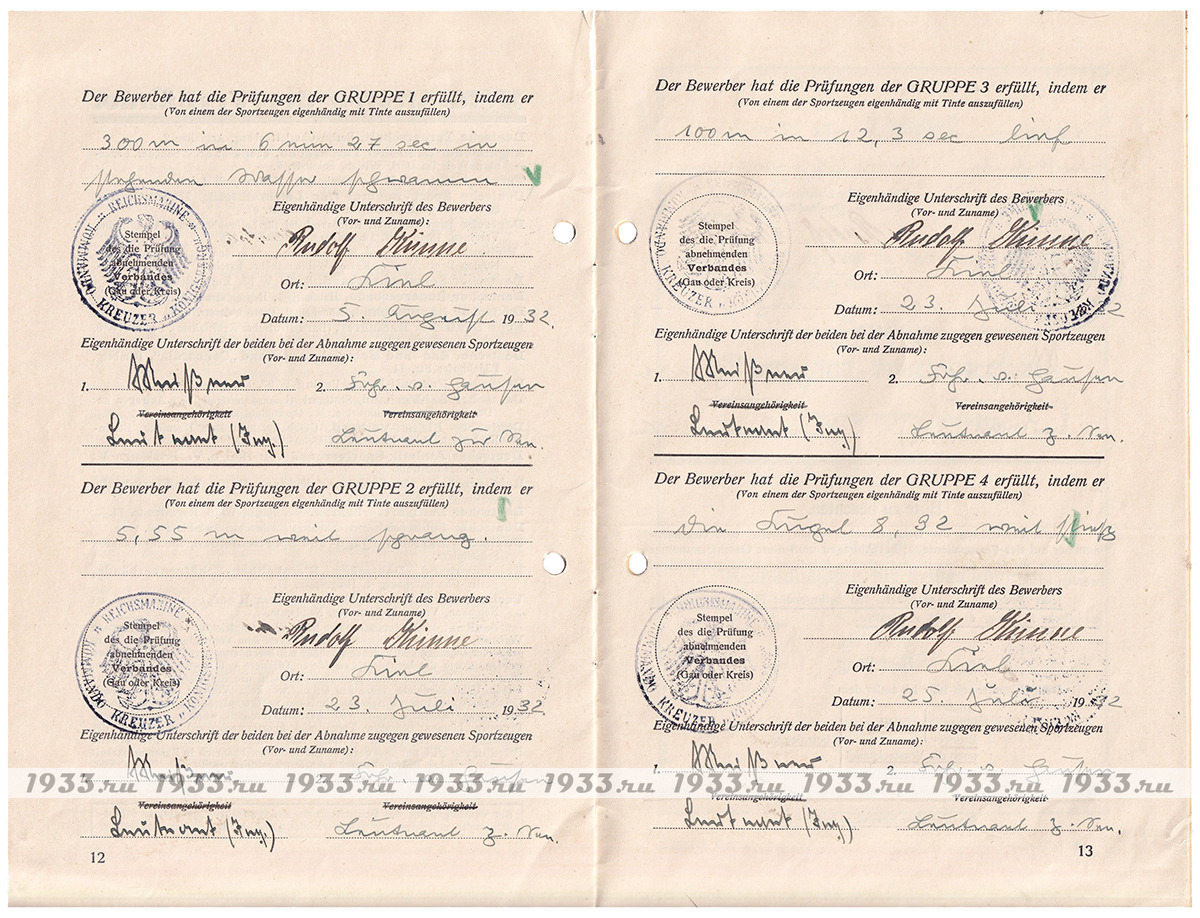 Der Bewerber hat die Prüfungen der GRUPPE 1 erfüllt, indem er
(Von einem der Sportzeugen eigenhändig mit Tinte auszufüllen)
300 m in 6 min 27 sec in
stehenden Wasser schwamm
KOMMANDO REICHSMARINE KREUZER „KÖNIGSBERG"
Stempel
des die Prüfung
abnehmenden
Verbandes
(Gau oder Kreis)
Eigenhändige Unterschrift des Bewerbers
(Vor- und Zuname):
Rudolf Künne
Ort: Kiel
Datum: 5. August 1932.
Eigenhändige Unterschrift der beiden bei der Abnahme zugegen gewesenen Sportzeugen
(Vor- und Zuname):
1. Meißner 2. Frhr. v. Hausen
Vereinsangehörigkeit Vereinsangehörigkeit
Leutnant (Ing.) Leutnant zur See.
Der Bewerber hat die Prüfungen der GRUPPE 2 erfüllt, indem er
(Von einem der Sportzeugen eigenhändig mit Tinte auszufüllen)
5,55 m weit sprang.
REICHSMARINE KOMMANDO KREUZER
Stempel
des die Prüfung
abnehmenden
Verbandes
(Gau oder Kreis)
Eigenhändige Unterschrift des Bewerbers
(Vor- und Zuname)
Rudolf Künne
Ort: Kiel
Datum: 23. Juli 1932
Eigenhändige Unterschrift der beiden bei der Abnahme zugegen gewesenen Sportzeugen
(Vor- und Zuname):
1. Meißner 2. Frhr. v. Hausen
Vereinsangehörigkeit Vereinsangehörigkeit
Leutnant (Ing.) Leutnant z. See.
12
Der Bewerber hat die Prüfungen der GRUPPE 3 erfüllt, indem er
(Von einem der Sportzeugen eigenhändig mit Tinte auszufüllen)
100 m in 12,3 sec lief
KREUZER
Stempel
des die Prüfung
abnehmenden
Verbandes
(Gau oder Kreis)
Eigenhändige Unterschrift des Bewerbers
(Vor- und Zuname)
Rudolf Künne
Ort: Kiel
Datum: 23. Juli 1932
Eigenhändige Unterschrift der beiden bei der Abnahme zugegen gewesenen Sportzeugen
(Vor- und Zuname):
1. Meißner 2. Frhr. v. Hausen
Vereinsangehörigkeit Vereinsangehörigkeit
Leutnant (Ing.) Leutnant z. See.
Der Bewerber hat die Prüfungen der GRUPPE 4 erfüllt, indem er
(Von einem der Sportzeugen eigenhändig mit Tinte auszufüllen)
die Kugel 8,32 weit stieß
KOMMANDO KREUZER
Stempel
des die Prüfung
abnehmenden
Verbandes
(Gau oder Kreis)
Eigenhändige Unterschrift des Bewerbers
(Vor- und Zuname)
Rudolf Künne
Ort: Kiel
Datum: 25. Juli 1932
Eigenhändige Unterschrift der beiden bei der Abnahme zugegen gewesenen Sportzeugen
(Vor- und Zuname):
1. Meißner 2. Frhr. v. Hausen
Vereinsangehörigkeit Vereinsangehörigkeit
Leutnant (Ing.) Leutnant z. See.
13
1933.ru 1933.ru 1933.ru 1933.ru 1933.ru 1933.ru 1933.ru 1933.ru 1933.ru